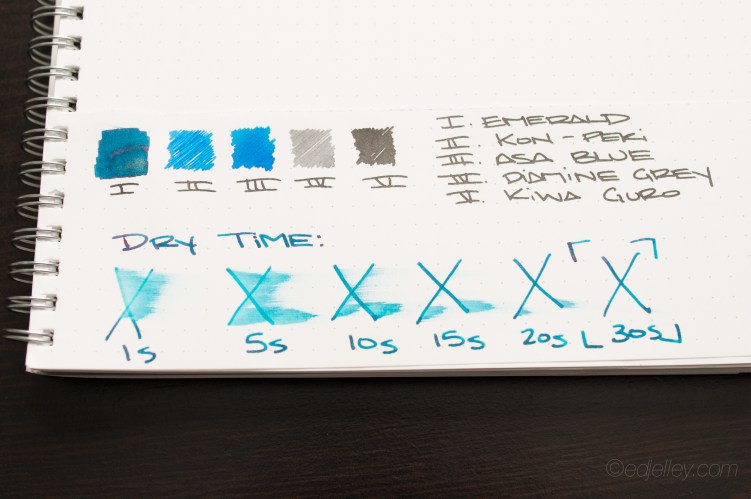 I. EMERALD
II. KON-PEKI
III. ASA BLUE
IV. DIAMINE GREY
V. KIWA GURO
I II III IV V
DRY TIME:
X X X X X X
1s 5s 10s 15s 20s 30s
©edjelley.com